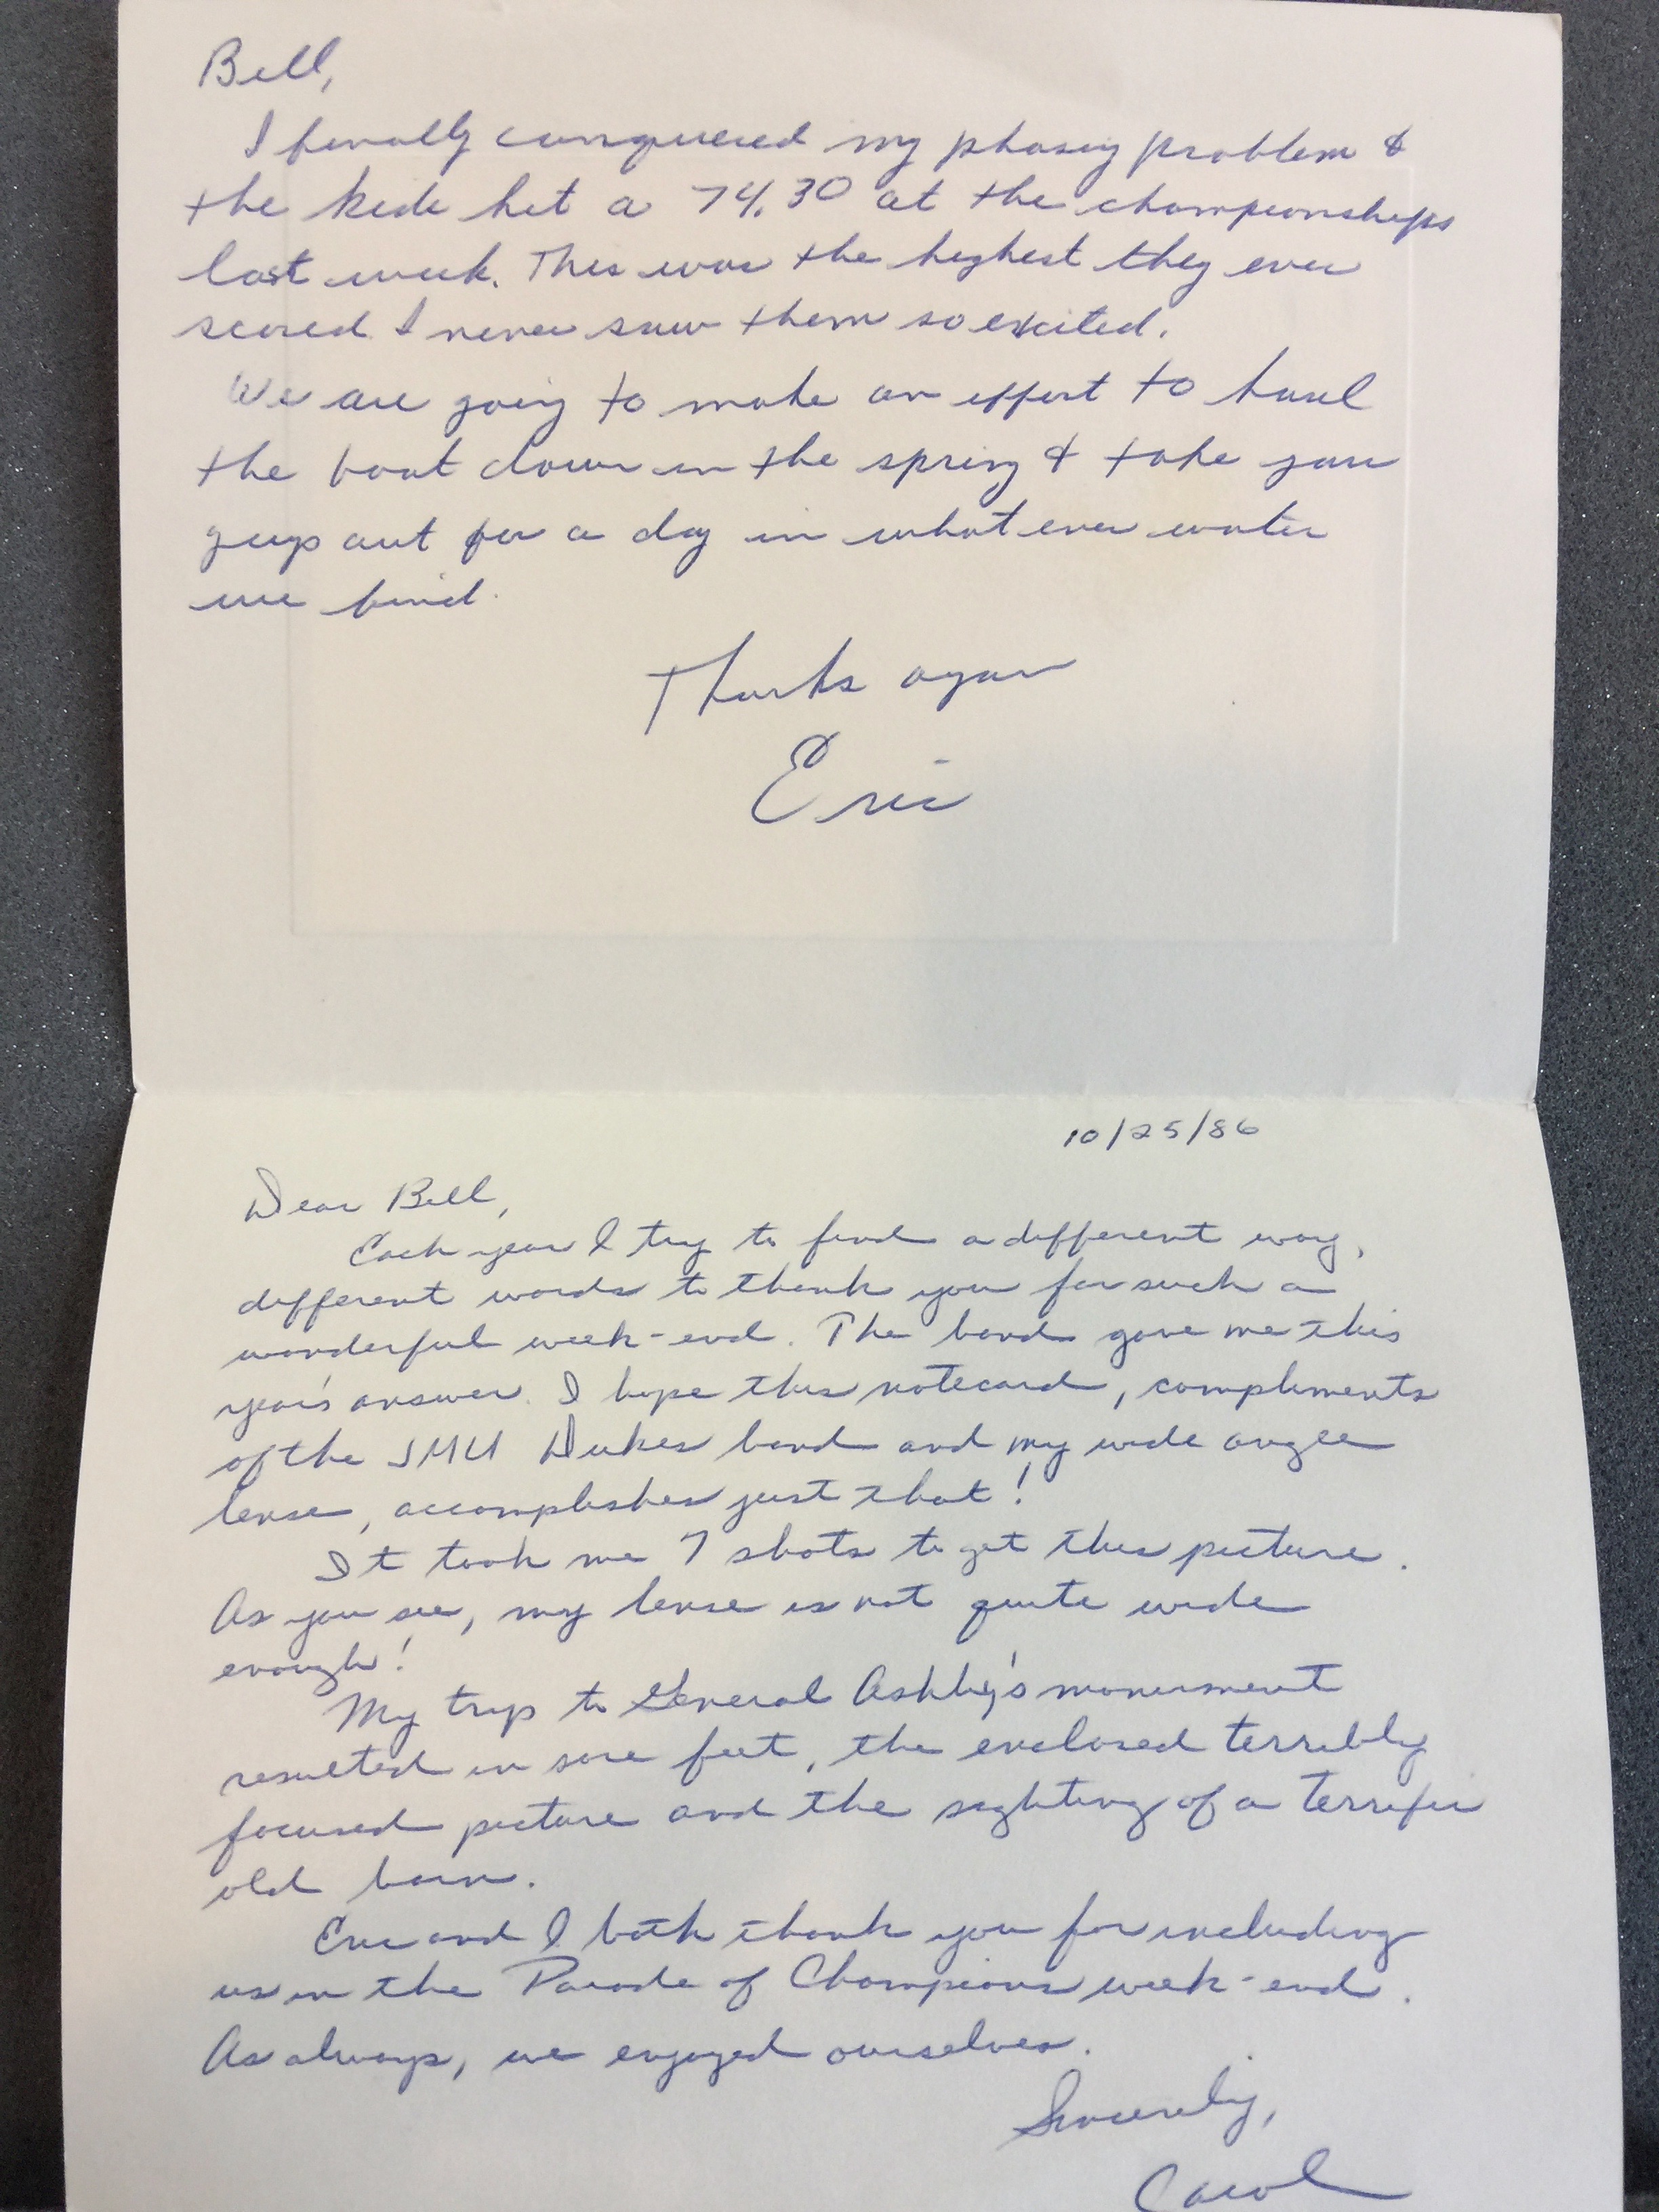 Bill,
I finally conquered my phasing problem &
the kids hit a 74.30 at the championships
last week. This was the highest they ever
scored I never saw them so excited.
We are going to make an effort to haul
the boat down in the spring & take you
guys out for a day in what ever water
we find.
Thanks again
Eric
10/25/86
Dear Bill,
Each year I try to find a different way,
different words to thank you for such a
wonderful week-end. The band gave me this
year's answer. I hope this notecard, compliments
of the JMU Dukes band and my wide angle
lense, accomplishes just that!
It took me 7 shots to get this picture.
As you see, my lense is not quite wide
enough!
My trip to General Ashby's monument
resulted in sore feet, the enclosed terribly
focused picture and the sighting of a terrific
old barn.
Eric and I both thank you for including
us in the Parade of Champions week-end.
As always, we enjoyed ourselves.
Sincerely,
Carol